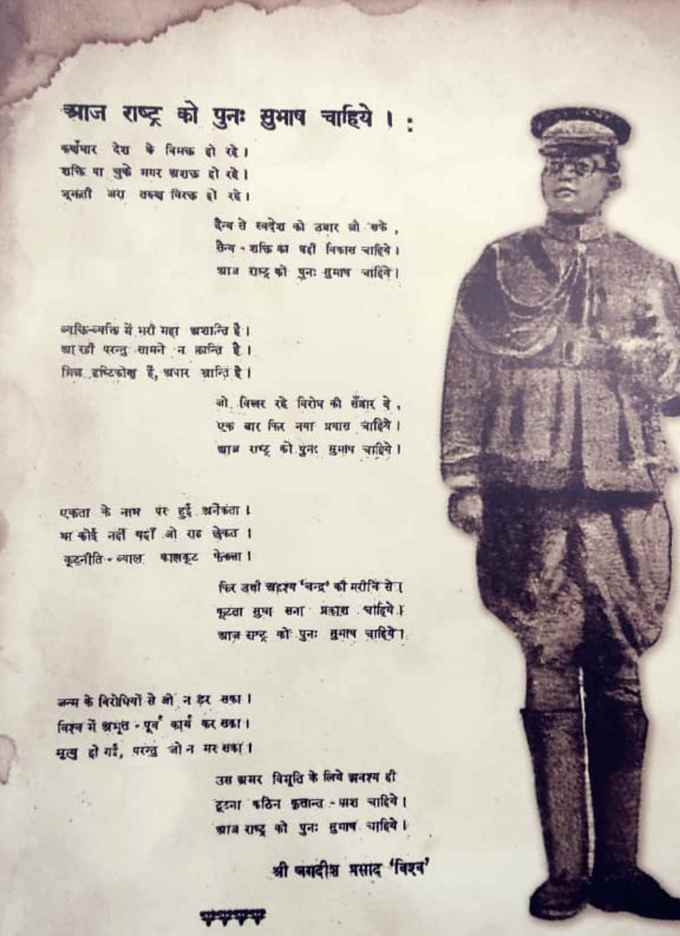 आज राष्ट्र को पुनः सुभाष चाहिये । :
कर्णधार देश के विभक्त हो रहे ।
शक्ति पा चुके मगर अशक्त हो रहे ।
जूझती जरा तरुण विरक्त हो रहे ।
दैन्य से स्वदेश को उबार जो सके ,
सैन्य - शक्ति का वही विकास चाहिये ।
आज राष्ट्र को पुनः सुभाष चाहिये ।
व्यक्ति-व्यक्ति में भरी महा अशान्ति है ।
आ रही परन्तु सामने न क्रान्ति है ।
भिन्न दृष्टिकोण हैं, अपार भ्रान्ति है ।
जो बिखर रहे विरोध को सँवार दे ,
एक बार फिर नया प्रयास चाहिये ।
आज राष्ट्र को पुनः सुभाष चाहिये ।
एकता के नाम पर हुई अनेकता ।
था कोई नहीं यहाँ जो राह छेकता ।
कूटनीति - व्याल कालकूट फेंकता ।
फिर उसी अदृश्य 'चन्द्र' की मरीचि से ।
फूटता सुधा सना प्रकाश चाहिये ।
आज राष्ट्र को पुनः सुभाष चाहिये ।
जन्म के विरोधियों से जो न डर सका ।
विश्व में अभूत - पूर्व कार्य कर सका ।
मृत्यु हो गई, परन्तु जो न मर सका ।
उस अमर विभूति के लिये अवश्य ही
टूटना कठिन कृतान्त - पाश चाहिये ।
आज राष्ट्र को पुनः सुभाष चाहिये ।
श्री जगदीश प्रसाद 'विश्व'